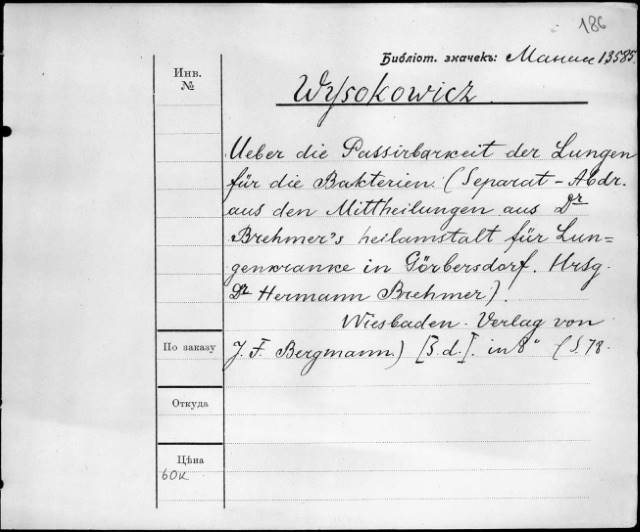 186
Библіот. значекъ: Манас 13585.
Инв.
№
Wysokowicz
Ueber die Passirbarkeit der Lungen
für die Bakterien. (Separat-Abdr.
aus den Mittheilungen aus Dr
Brehmer's heilamstalt für Lun=
genkranke in Görbersdorf. Hrsg.
Dr Hermann Brehmer).
Wiesbaden. Verlag von
По заказу
J. F. Bergmann.) [S. d.]. in 8° (S. 78.
Откуда
Цѣна
60к